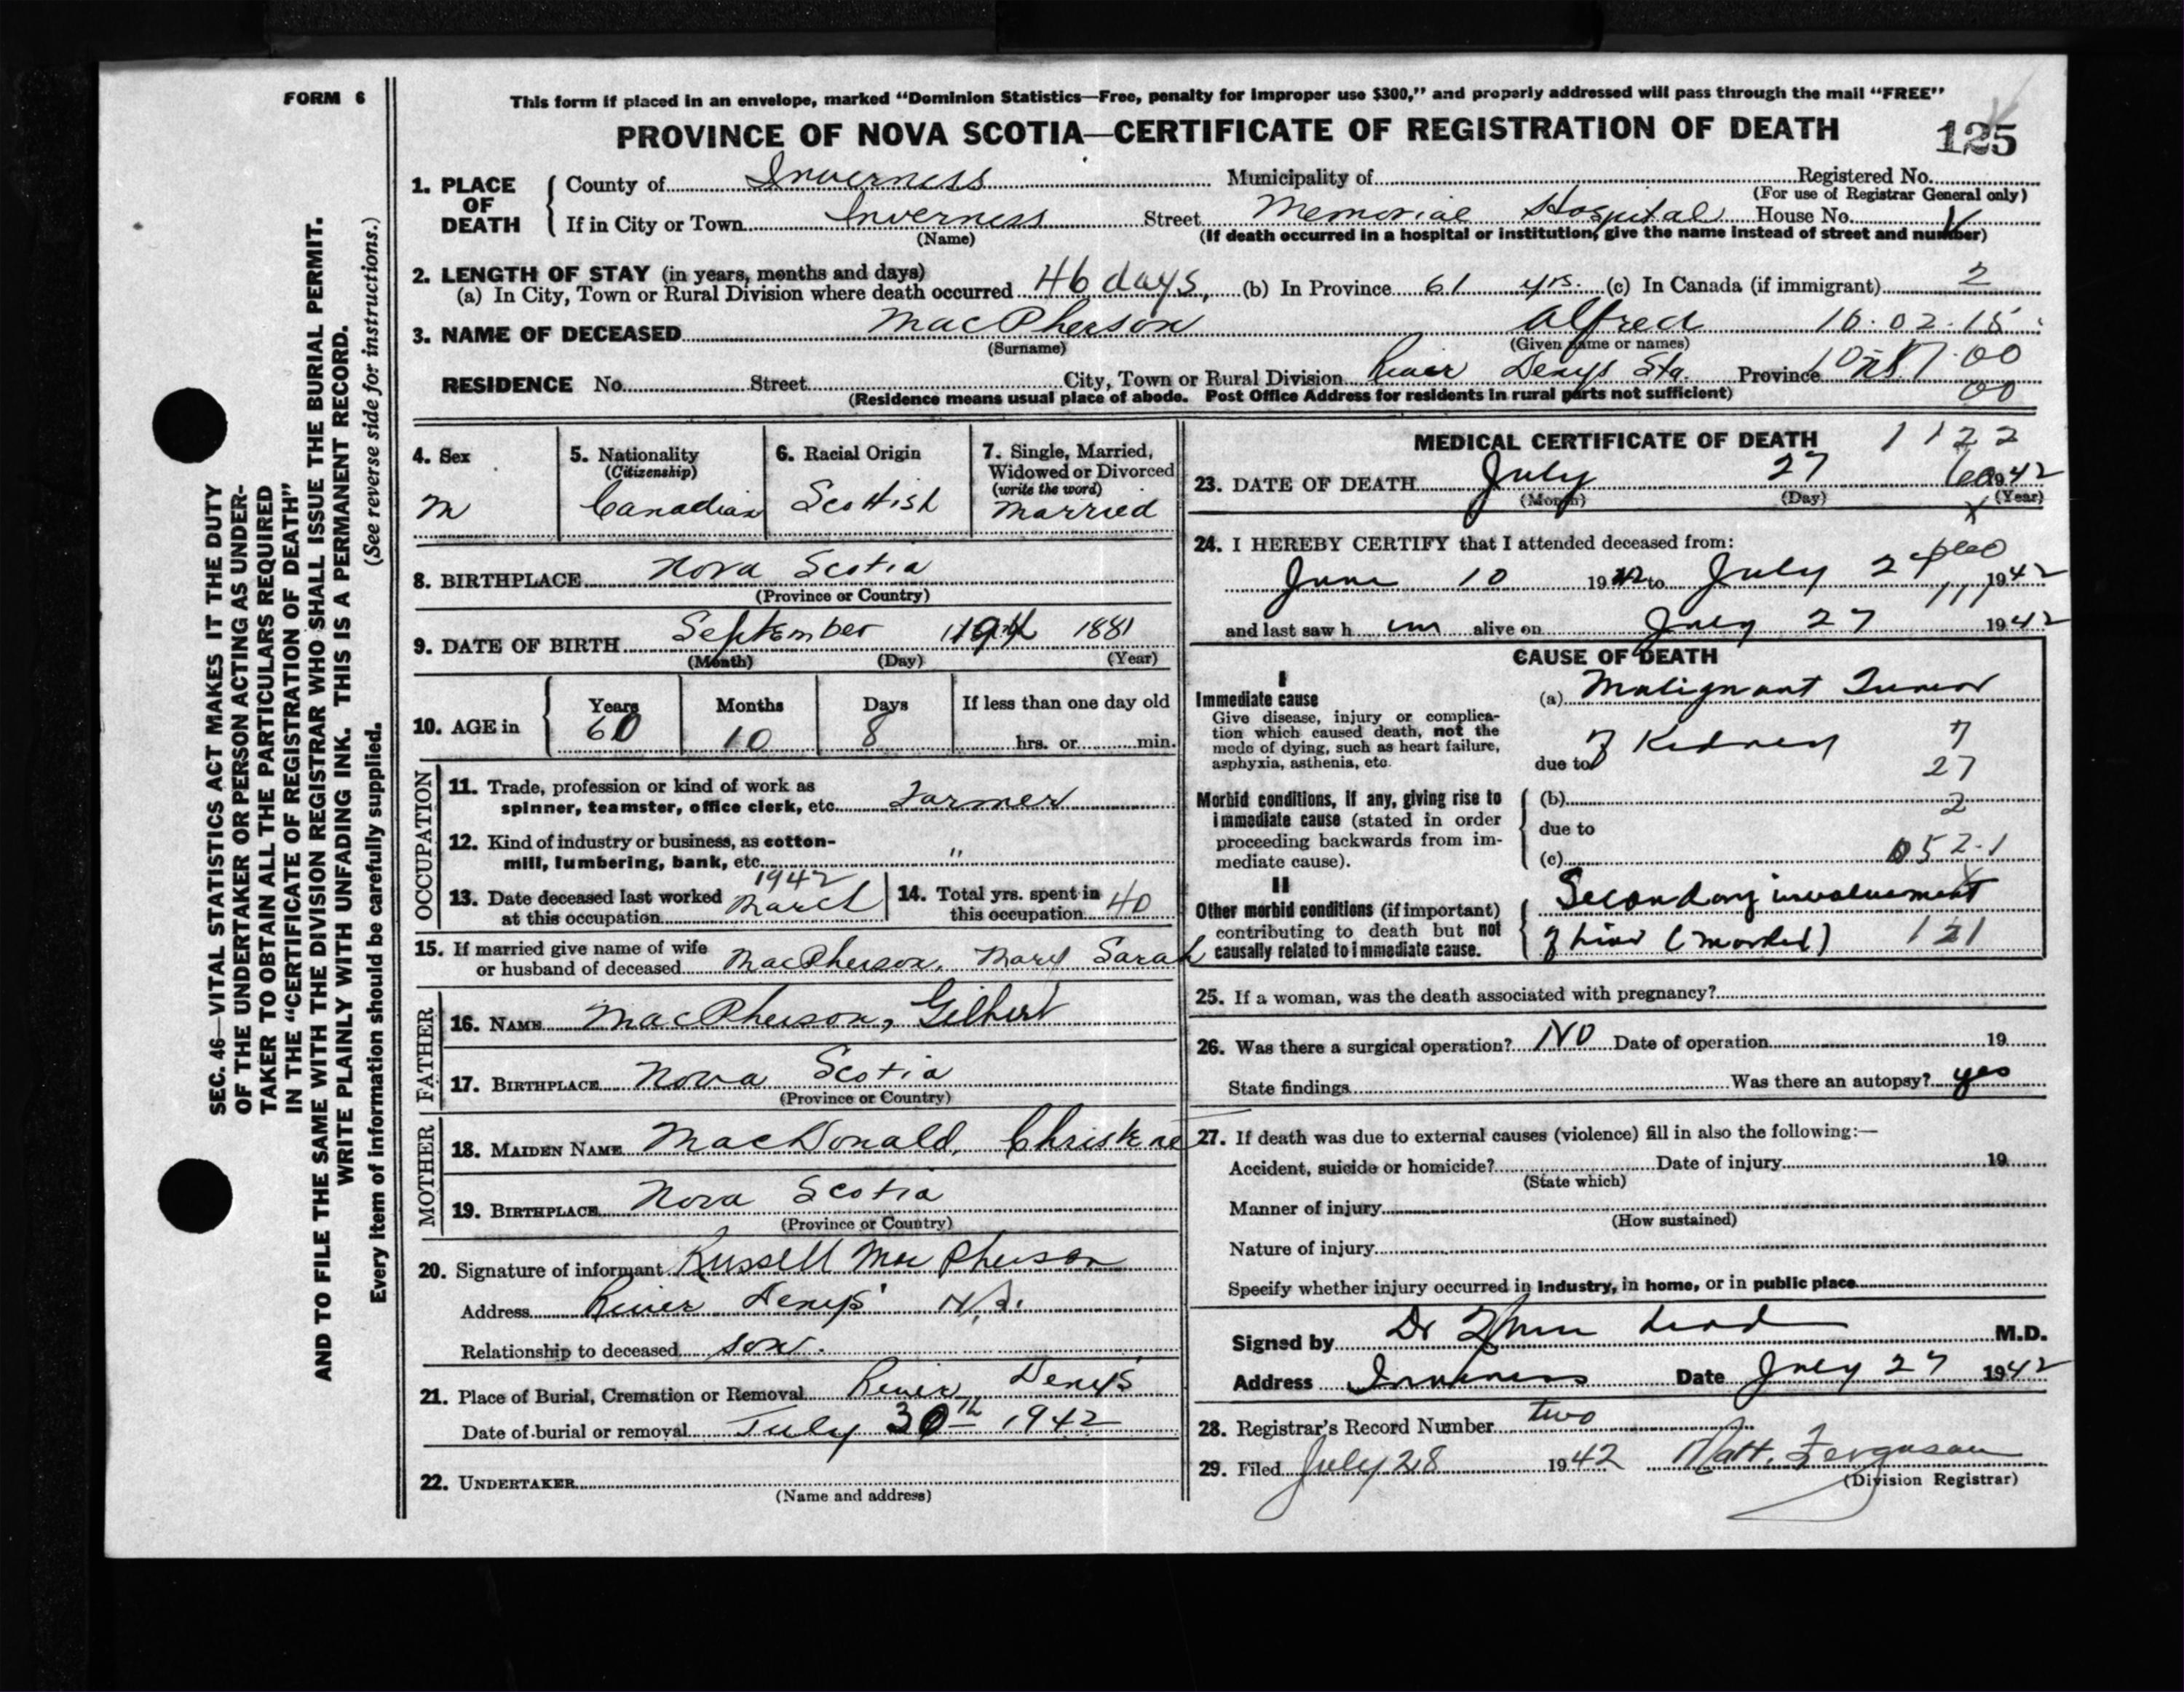 FORM 6
This form if placed in an envelope, marked "Dominion Statistics—Free, penalty for improper use $300," and properly addressed will pass through the mail "FREE"
PROVINCE OF NOVA SCOTIA—CERTIFICATE OF REGISTRATION OF DEATH 125
SEC. 46—VITAL STATISTICS ACT MAKES IT THE DUTY
OF THE UNDERTAKER OR PERSON ACTING AS UNDER-
TAKER TO OBTAIN ALL THE PARTICULARS REQUIRED
IN THE "CERTIFICATE OF REGISTRATION OF DEATH"
AND TO FILE THE SAME WITH THE DIVISION REGISTRAR WHO SHALL ISSUE THE BURIAL PERMIT.
WRITE PLAINLY WITH UNFADING INK. THIS IS A PERMANENT RECORD.
Every item of information should be carefully supplied. (See reverse side for instructions.)
1. PLACE OF DEATH
County of Inverness Municipality of Registered No.
(For use of Registrar General only)
If in City or Town Inverness Street Memorial Hospital House No.
(Name) (If death occurred in a hospital or institution, give the name instead of street and number)
2. LENGTH OF STAY (in years, months and days)
(a) In City, Town or Rural Division where death occurred 46 days, (b) In Province 61 yrs. (c) In Canada (if immigrant) 2
3. NAME OF DECEASED MacPherson Alfred 10.02.15
(Surname) (Given name or names)
RESIDENCE No. Street City, Town or Rural Division River Denys Sta. Province
(Residence means usual place of abode. Post Office Address for residents in rural parts not sufficient) 00
4. Sex
M
5. Nationality
(Citizenship)
Canadian
6. Racial Origin
Scottish
7. Single, Married,
Widowed or Divorced
(write the word)
Married
8. BIRTHPLACE Nova Scotia
(Province or Country)
9. DATE OF BIRTH September 1881
(Month) (Day) (Year)
10. AGE in Years Months Days If less than one day old
60 10 8 hrs. or min.
OCCUPATION
11. Trade, profession or kind of work as
spinner, teamster, office clerk, etc. Farmer
12. Kind of industry or business, as cotton-
mill, lumbering, bank, etc. "
13. Date deceased last worked 1942
at this occupation March
14. Total yrs. spent in
this occupation 40
15. If married give name of wife
or husband of deceased MacPherson, Mary Sarah
FATHER
16. NAME MacPherson, Gilbert
17. BIRTHPLACE Nova Scotia
(Province or Country)
MOTHER
18. MAIDEN NAME MacDonald, Christine
19. BIRTHPLACE Nova Scotia
(Province or Country)
20. Signature of informant Russell MacPherson
Address River Denys N.S.
Relationship to deceased son.
21. Place of Burial, Cremation or Removal River Denys
Date of burial or removal July 30th 1942
22. UNDERTAKER
(Name and address)
MEDICAL CERTIFICATE OF DEATH 1122
23. DATE OF DEATH July 27 1942
(Month) (Day) (Year)
24. I HEREBY CERTIFY that I attended deceased from:
June 10 1942 to July 27 1942
and last saw him alive on July 27 1942
CAUSE OF DEATH
I
Immediate cause
Give disease, injury or complica-
tion which caused death, not the
mode of dying, such as heart failure,
asphyxia, asthenia, etc.
(a) Malignant Tumor
due to of Kidney 7
27
Morbid conditions, if any, giving rise to
immediate cause (stated in order
proceeding backwards from im-
mediate cause).
(b) 2
due to
(c) 052.1
II
Other morbid conditions (if important)
contributing to death but not
causally related to immediate cause.
Secondary involvement
of liver (marked) 121
25. If a woman, was the death associated with pregnancy?
26. Was there a surgical operation? NO Date of operation 19
State findings Was there an autopsy? yes
27. If death was due to external causes (violence) fill in also the following:—
Accident, suicide or homicide? Date of injury 19
(State which)
Manner of injury
(How sustained)
Nature of injury
Specify whether injury occurred in industry, in home, or in public place
Signed by Dr M.D.
Address Inverness Date July 27 1942
28. Registrar's Record Number two
29. Filed July 28 1942 Matt. Ferguson
(Division Registrar)